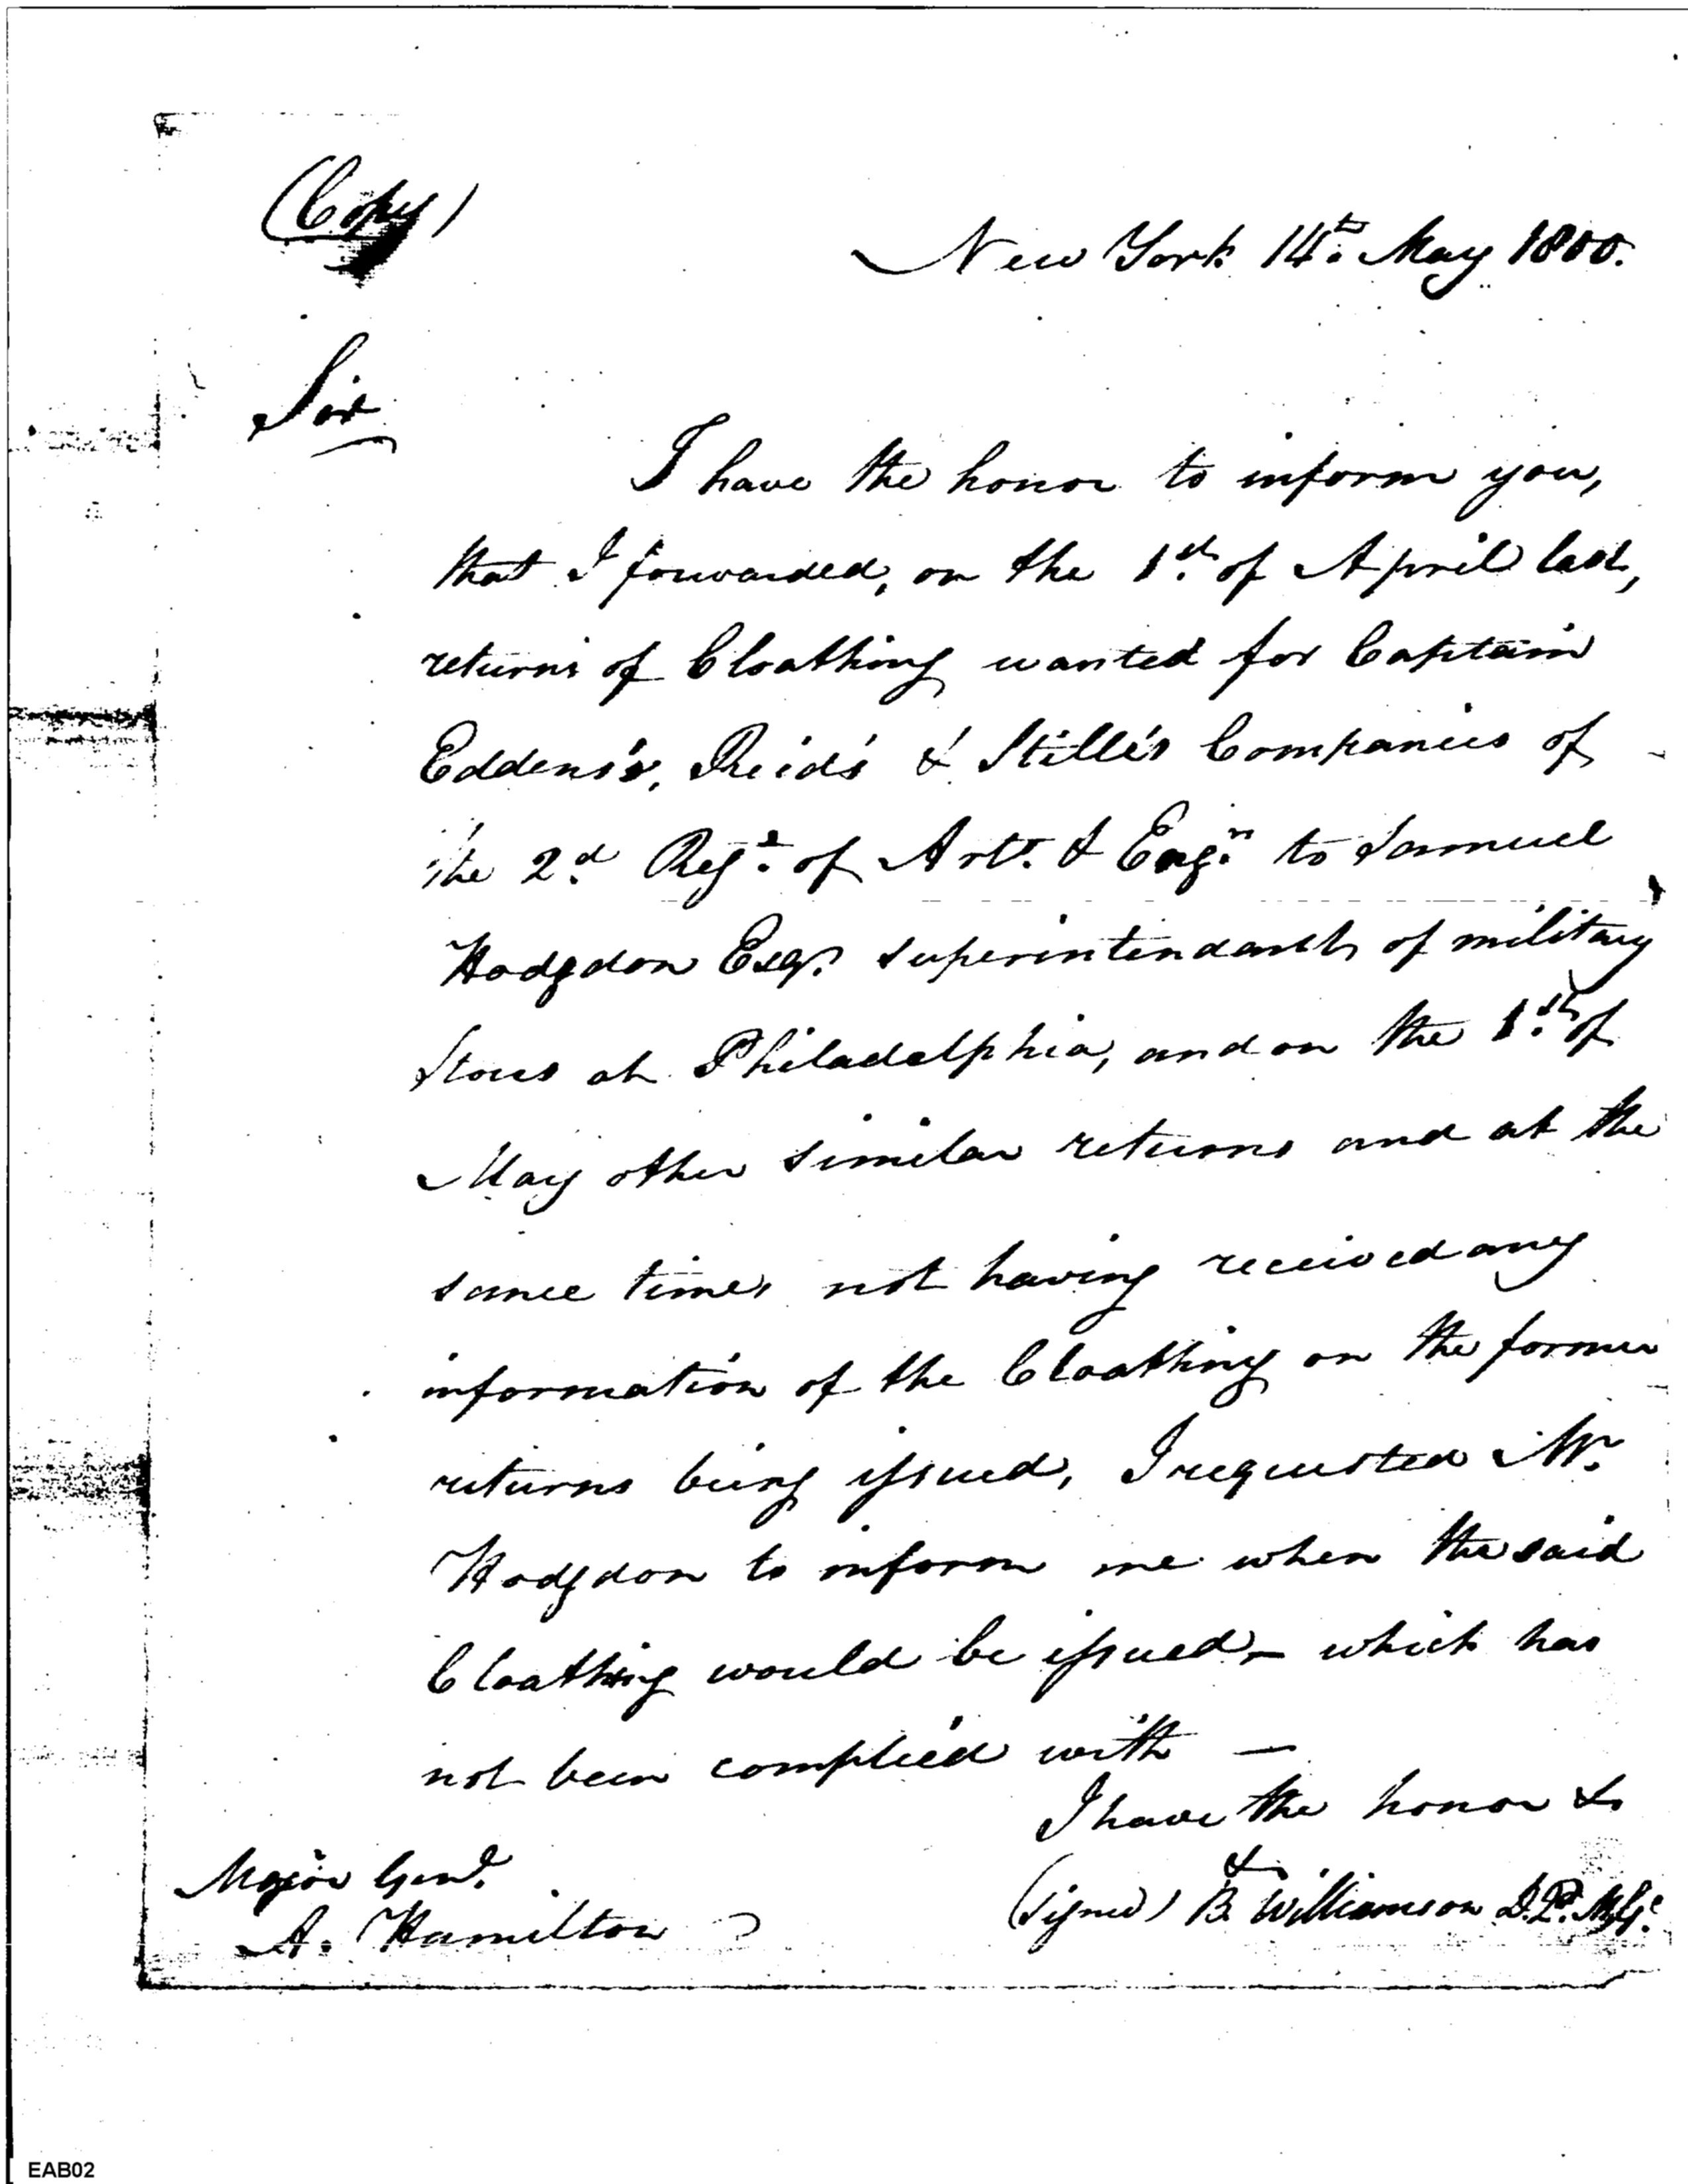 (Copy)
New York 14th May 1800.
Sir
I have the honor to inform you,
that I forwarded, on the 1st of April last,
returns of Cloathing wanted for Captain
Eddens's, Reid's & Stille's Companies of
the 2d Regt of Arts. & Engn to Samuel
Hodgdon Esqr. superintendant of military
Stores at Philadelphia, and on the 1st of
May other similar returns and at the
same time, not having received any
information of the Cloathing on the former
returns being issued, I requested Mr.
Hodgdon to inform me when the said
Cloathing would be issued, which has
not been complied with —
I have the honor &c
&c
(signed) B. Williamson D.P.
Major Genl.
A. Hamilton
EAB02